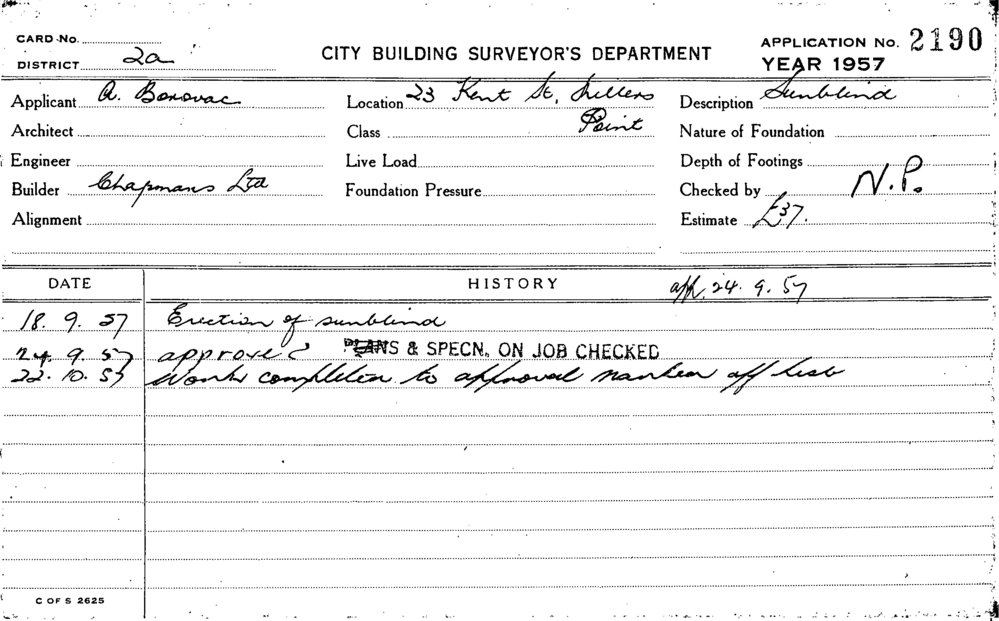 CARD No.
DISTRICT 2a
CITY BUILDING SURVEYOR'S DEPARTMENT
APPLICATION No. 2190
YEAR 1957
Applicant A. Borovac
Location 23 Kent St, Millers Point
Description Sunblind
Architect
Class
Nature of Foundation
Engineer
Live Load
Depth of Footings
Builder Chapmans Ltd
Foundation Pressure
Checked by N.P.
Alignment
Estimate £37.
DATE
HISTORY
app. 24. 9. 57
18. 9. 57 Erection of sunblind
24. 9. 57 approved PLANS & SPECN. ON JOB CHECKED
22. 10. 57 Work completed to approval marked off list
C OF S 2625